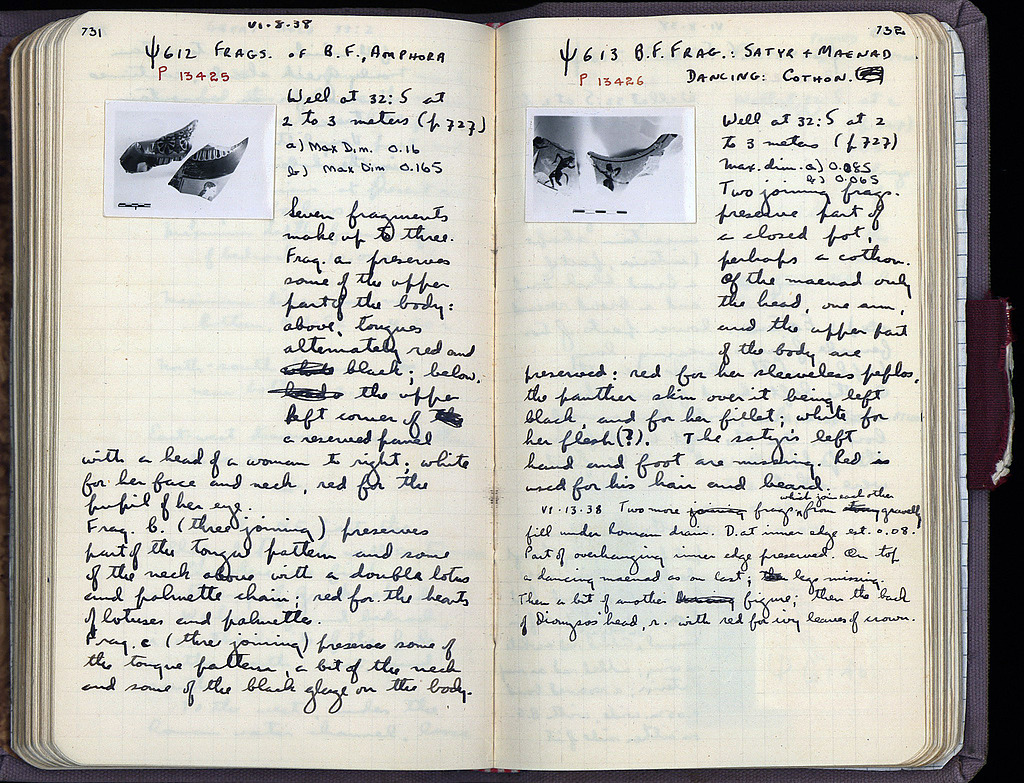 731
VI-8-38
Ψ612 FRAGS. OF B.F., AMPHORA
P 13425
Well at 32:5 at
2 to 3 meters (p 727)
a) Max Dim. 0.16
b) Max Dim 0.165
Seven fragments
make up to three.
Frag. a preserves
some of the upper
part of the body:
above, tongues
alternately red and
black; below,
the upper
left corner of
a reserved panel
with a head of a woman to right; white
for her face and neck, red for the
pupil of her eye.
Frag. b. (three joining) preserves
part of the tongue pattern and some
of the neck above with a double lotus
and palmette chain; red for the hearts
of lotuses and palmettes.
Frag. c (three joining) preserves some of
the tongue pattern, a bit of the neck
and some of the black glaze on the body.
732
Ψ613 B.F. FRAG.: SATYR + MAENAD
P 13426 DANCING: COTHON.
Well at 32:5 at 2
to 3 meters (p 727)
Max. dim. a) 0.085
b) 0.065
Two joining frags.
preserve part of
a closed pot,
perhaps a cothon.
Of the maenad only
the head, one arm,
and the upper part
of the body are
preserved: red for her sleeveless peplos,
the panther skin over it being left
black, and for her fillet; white for
her flesh (?). The satyr's left
hand and foot are missing. Red is
used for his hair and beard.
VI-13-38 Two more joining frags. which join each other from gravelly
fill under homan drain. D. at inner edge est. 0.08.
Part of overhanging inner edge preserved. On top
a dancing maenad as on last; legs missing.
Then a bit of another figure; then the back
of Dionysos' head, r. with red for ivy leaves of crown.